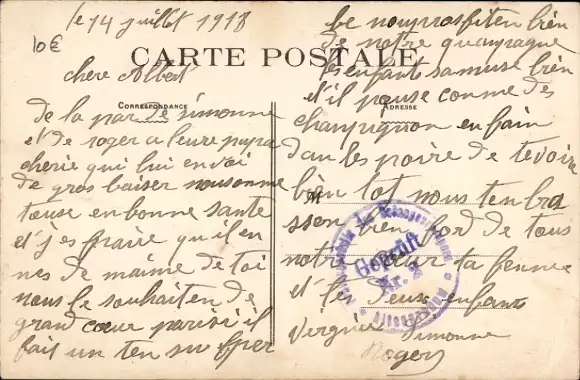 le 14 juillet 1918
10€
CARTE POSTALE
chere Albert
CORRESPONDANCE
ADRESSE
de la par de simonne
et de roger a leure papa
cherie qui lui envoi
de gros baiser nousomme
touse en bonne sante
et j espaire qu il en
nes de maime de toi
nous le souhaiten de
grand cœur parisi il
fait un ten su
be nouprofiten bien
de notre quampagne
les enfant samuse bien
et il pouse comme des
champignon enfain
dan les poire de te voire
bien tot nous ten bra
ssen bien for de tous
notre cœur ta fenme
et les deux enfant
Virginie Simonne
Roger
Geprüft
Nr.